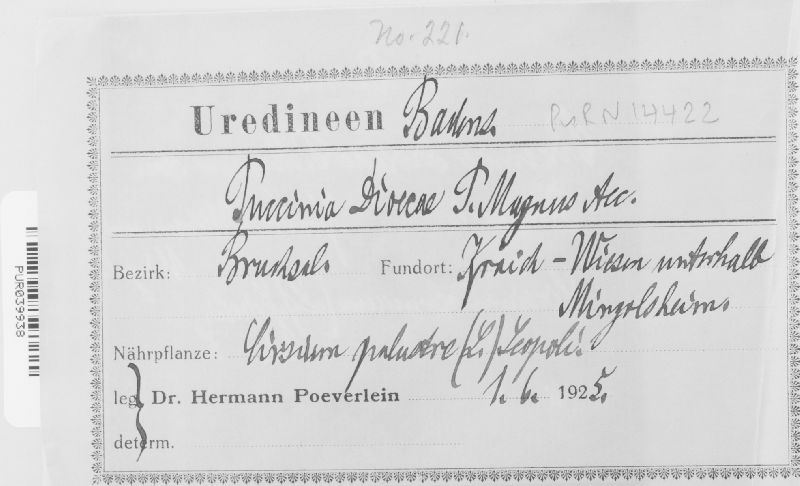 No. 221.
Uredineen Badens.
PurN14422
Puccinia Dioecae P. Magnus Aec.
Bezirk: Bruchsal. Fundort: Kraich-Wiesen unterhalb
Mingolsheim.
Nährpflanze: Cirsium palustre (L.) Scopoli.
leg. Dr. Hermann Poeverlein 1. 6. 1925.
determ.
PUR039938